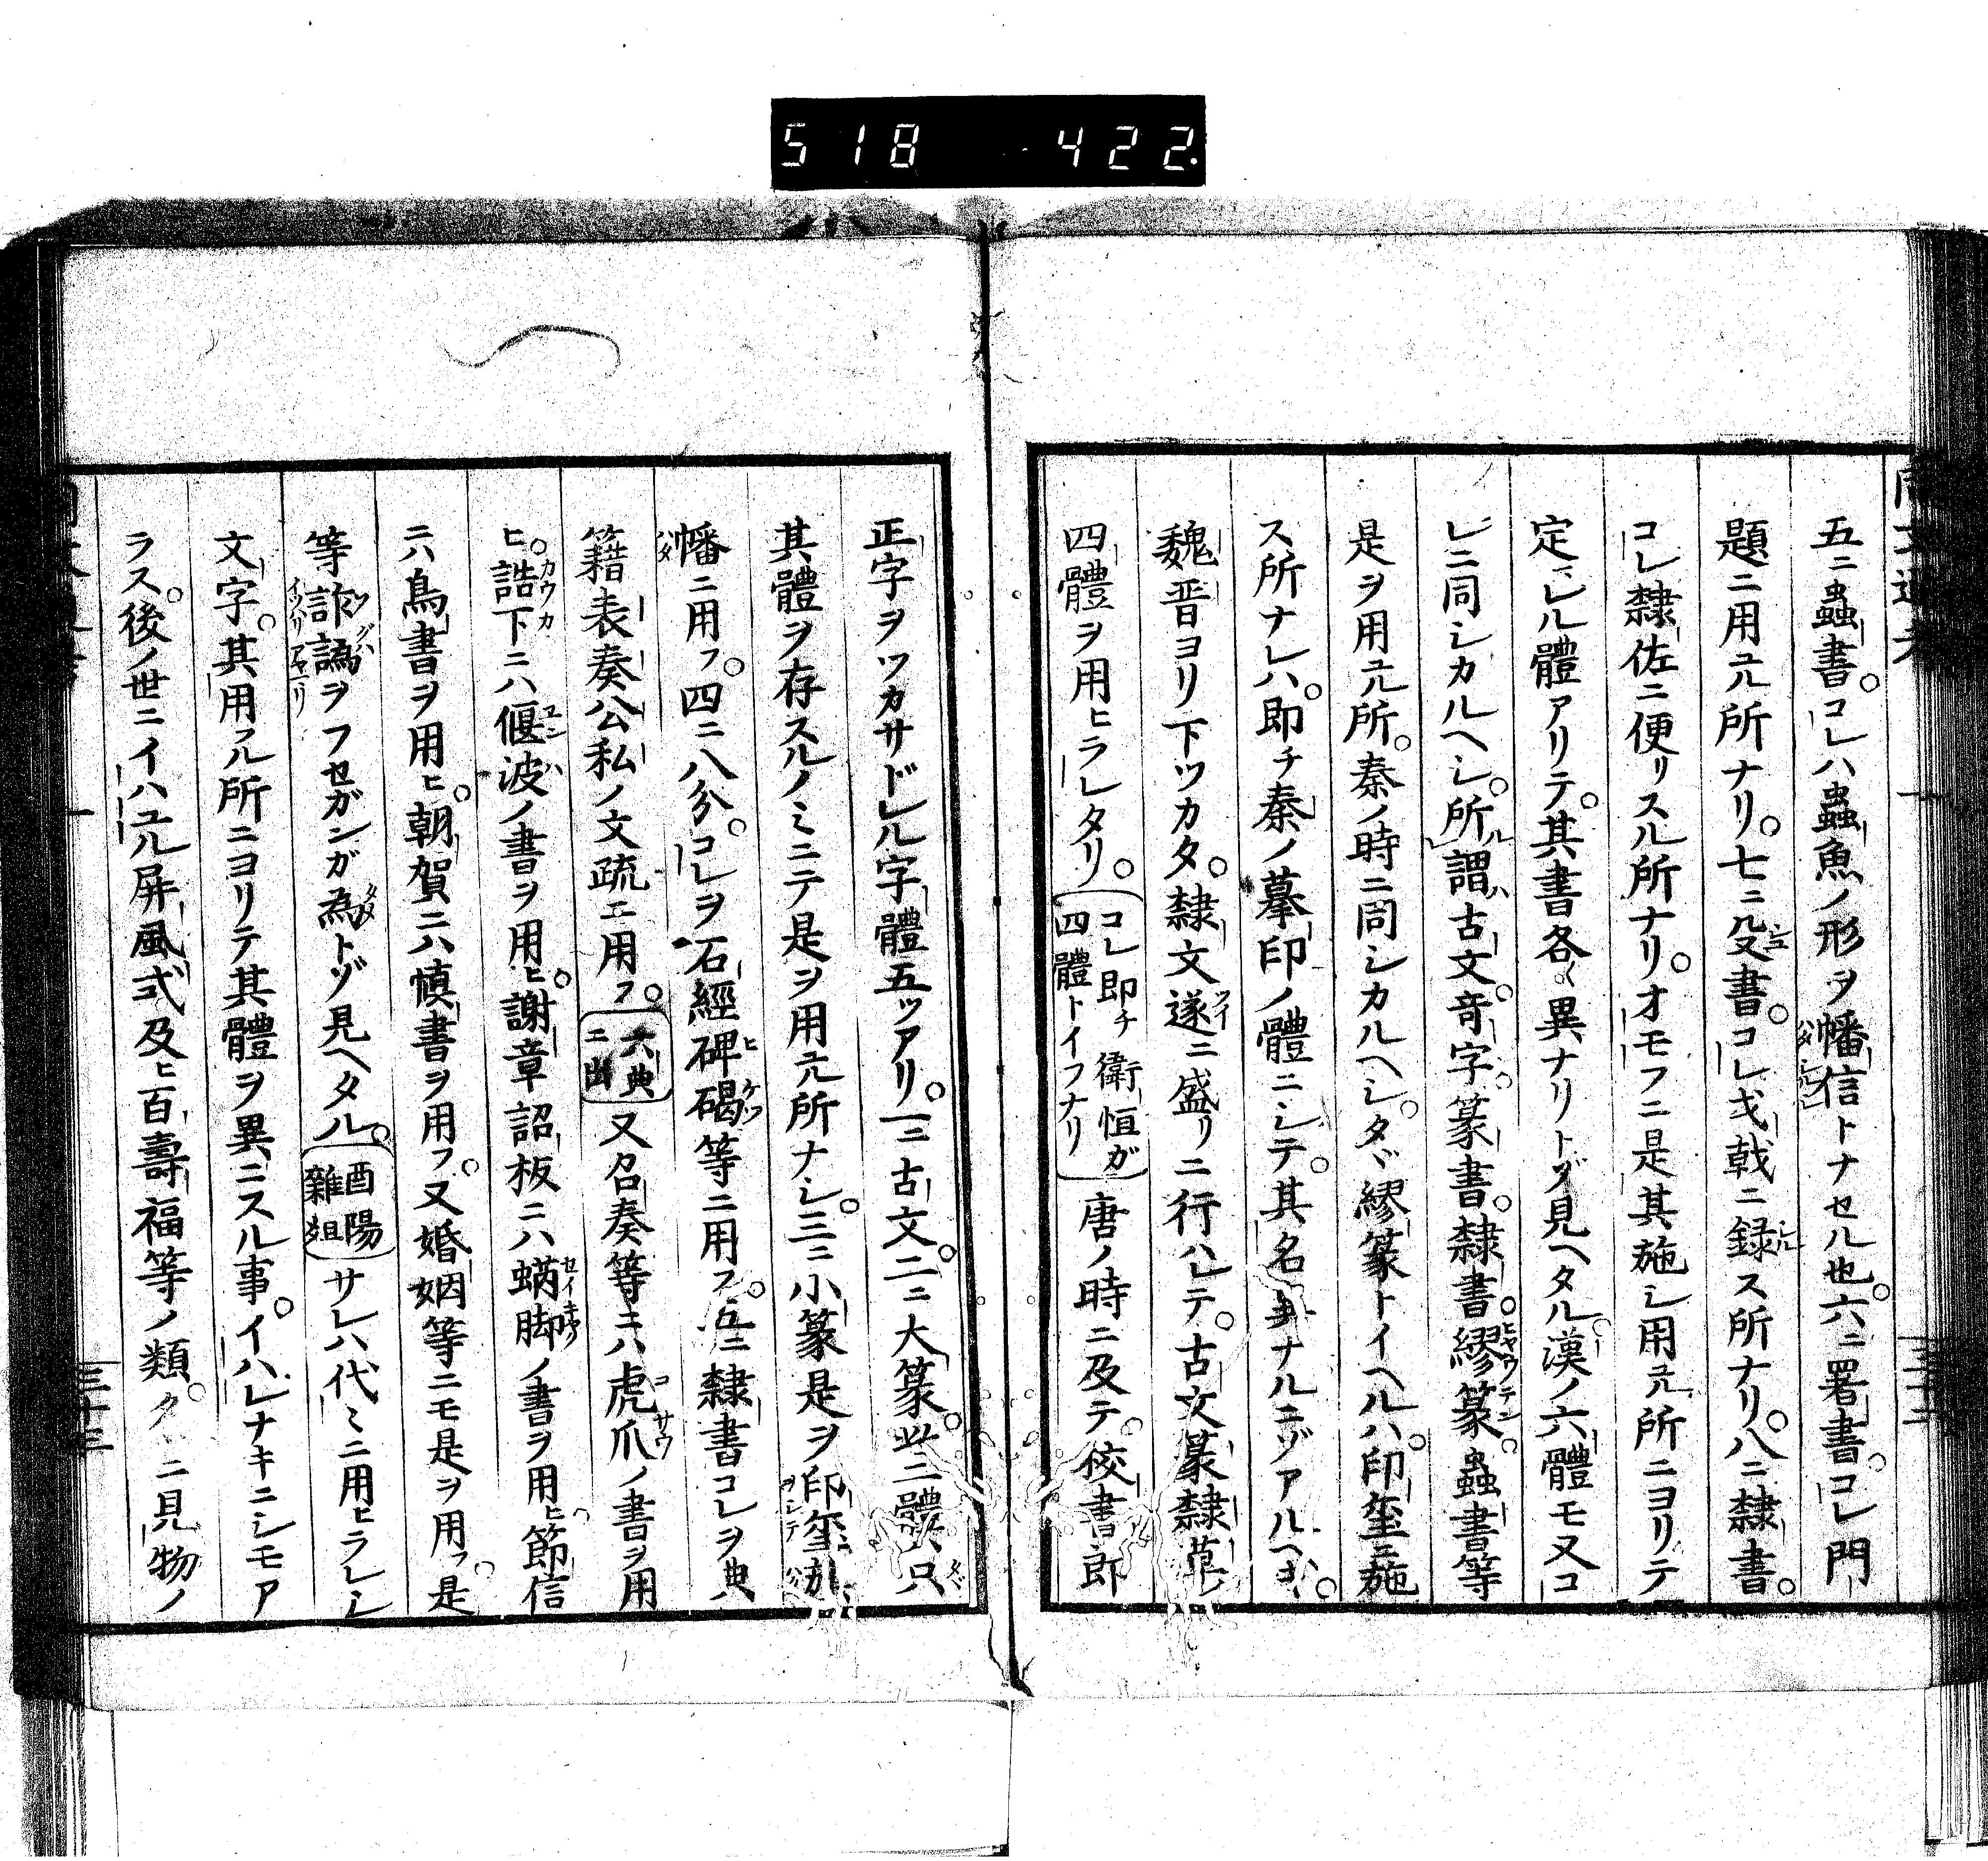 518 422
五ニ蟲書。コレハ蟲魚ノ形ヲ幡信トナセル也。六ニ署書。コレ門
題ニ用ル所ナリ。七ニ殳書。コレ戈戟ニ録ス所ナリ。八ニ隷書。
コレ隷佐ニ便リスル所ナリ。オモフニ是其施シ用ル所ニヨリテ
定レル體アリテ。其書各〻異ナリトゾ見ヘタル。漢ノ六體モ又コ
レニ同シカルヘシ。所謂ル古文。竒字。篆書。隷書。繆篆。蟲書等
是ヲ用ル所。秦ノ時ニ同シカルヘシ。タヾ繆篆トイヘルハ。印璽ニ施
ス所ナレハ。即チ秦ノ摹印ノ體ニシテ。其名ナルニゾアルヘ
魏晋ヨリ下ツカタ。隷文遂ニ盛リニ行ハレテ。古文篆隷草ノ
四體ヲ用ヒラレタリ。コレ即チ衛恒ガ四體トイフナリ 唐ノ時ニ及テ。校書郎
正字ヲツカサドレル字體五ツアリ。一ニ古文。二ニ大篆。此二體ハ只
其體ヲ存スルノミニテ是ヲ用ル所ナシ。三ニ小篆是ヲ印璽
幡ニ用フ。四ニ八分。コレヲ石經碑碣等ニ用フ。五ニ隷書コレヲ典
籍表奏公私ノ文疏ニ用フ。六典ニ出 又召奏等ニハ虎爪ノ書ヲ用
ヒ。誥下ニハ偃波ノ書ヲ用ヒ。謝章詔板ニハ蜹脚ノ書ヲ用ヒ。節信
ニハ鳥書ヲ用ヒ。朝賀ニハ慎書ヲ用フ。又婚姻等ニモ是ヲ用フ。是
等詐譌ヲフセガンガ為トゾ見ヘタル。酉陽雜俎 サレハ代〻ニ用ヒラレシ
文字。其用ル所ニヨリテ其體ヲ異ニスル事。イハレナキニシモア
ラス。後ノ世ニイハユル屏風弍及ヒ百壽福等ノ類。タヽニ見物ノ
三十三